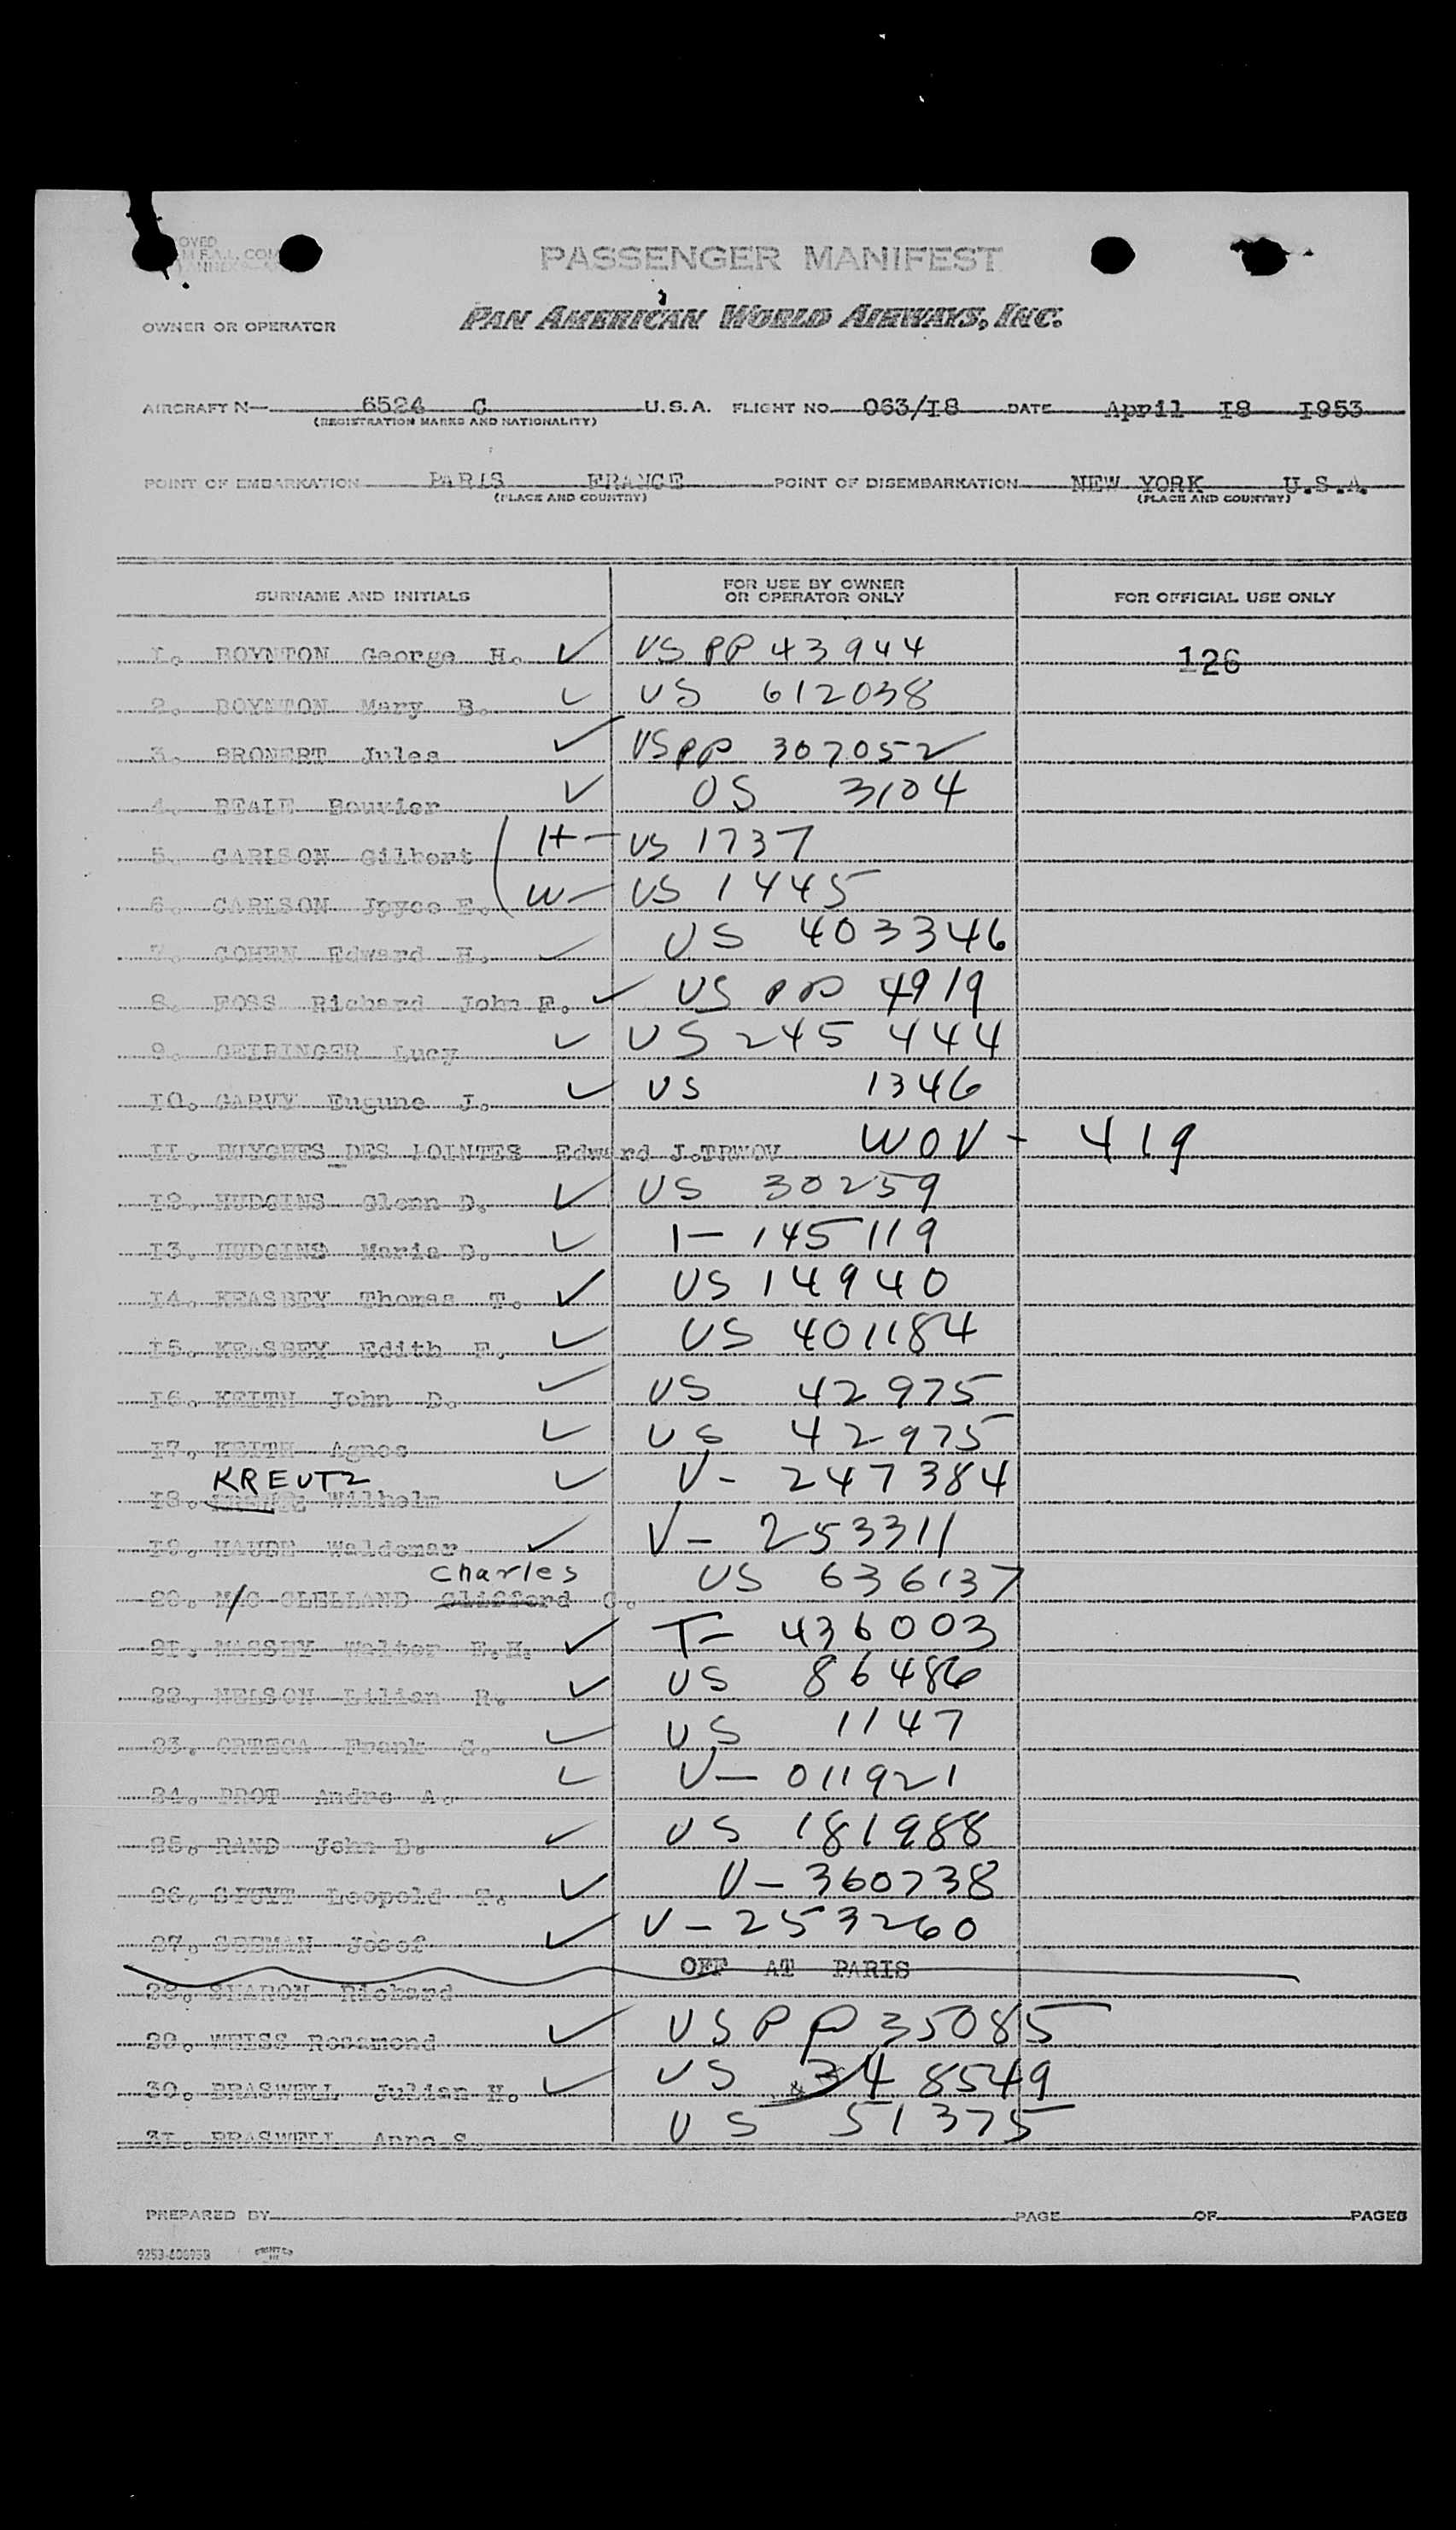 OVED
M F.A.L. COM
ANNEX 9
PASSENGER MANIFEST
OWNER OR OPERATOR PAN AMERICAN WORLD AIRWAYS, INC.
AIRCRAFT N— 6524 C U.S.A. FLIGHT NO. 063/I8 DATE April I8 I953
(REGISTRATION MARKS AND NATIONALITY)
POINT OF EMBARKATION PARIS FRANCE POINT OF DISEMBARKATION NEW YORK U.S.A.
(PLACE AND COUNTRY) (PLACE AND COUNTRY)
SURNAME AND INITIALS FOR USE BY OWNER OR OPERATOR ONLY FOR OFFICIAL USE ONLY
I. BOYNTON George H. ✓ US PP 43944 126
2. BOYNTON Mary B. ✓ US 612038
3. BRONERT Jules ✓ US PP 307052
4. BEALE Bouvier ✓ US 3104
5. CARLSON Gilbert H — US 1737
6. CARLSON Jpyce E. W — US 1445
7. COHEN Edward H. ✓ US 403346
8. FOSS Richard John F. ✓ US PP 4919
9. GEIRINGER Lucy ✓ US 245 444
IO. GARVY Eugune J. ✓ US 1346
II. DES LOINTES Edward J. WOV - 419
I2. HUDGINS Glenn D. ✓ US 30259
I3. HUDGINS Maria D. ✓ I — 145119
I4. KEASBEY Thomas T. ✓ US 14940
I5. KEASBEY Edith F. ✓ US 401184
I6. KEITH John D. ✓ US 42975
I7. KEITH Agnes ✓ US 42975
KREUTZ
I8. Wilhelm ✓ V - 247384
I9. HAUDE Waldemar ✓ V - 253311
Charles
20. M/C CLELLAND Clifford C. US 636137
2I. MASSEY Walter E.H. ✓ T - 436003
22. NELSON Lilian R. ✓ US 86486
23. ORTEGA Frank G. ✓ US 1147
24. PROT Andre A. ✓ V — 011921
25. RAND John B. ✓ US 181988
26. Leopold T. ✓ V - 360738
27. SEEMAN Josef ✓ V - 253260
OFF AT PARIS
28. SHARON Richard
29. WEISS Rosamond ✓ US PP 35085
30. BRASWELL Julian H. ✓ US 348549
3I. BRASWELL Anne S. US 51375
PREPARED BY PAGE OF PAGES
PRINTED